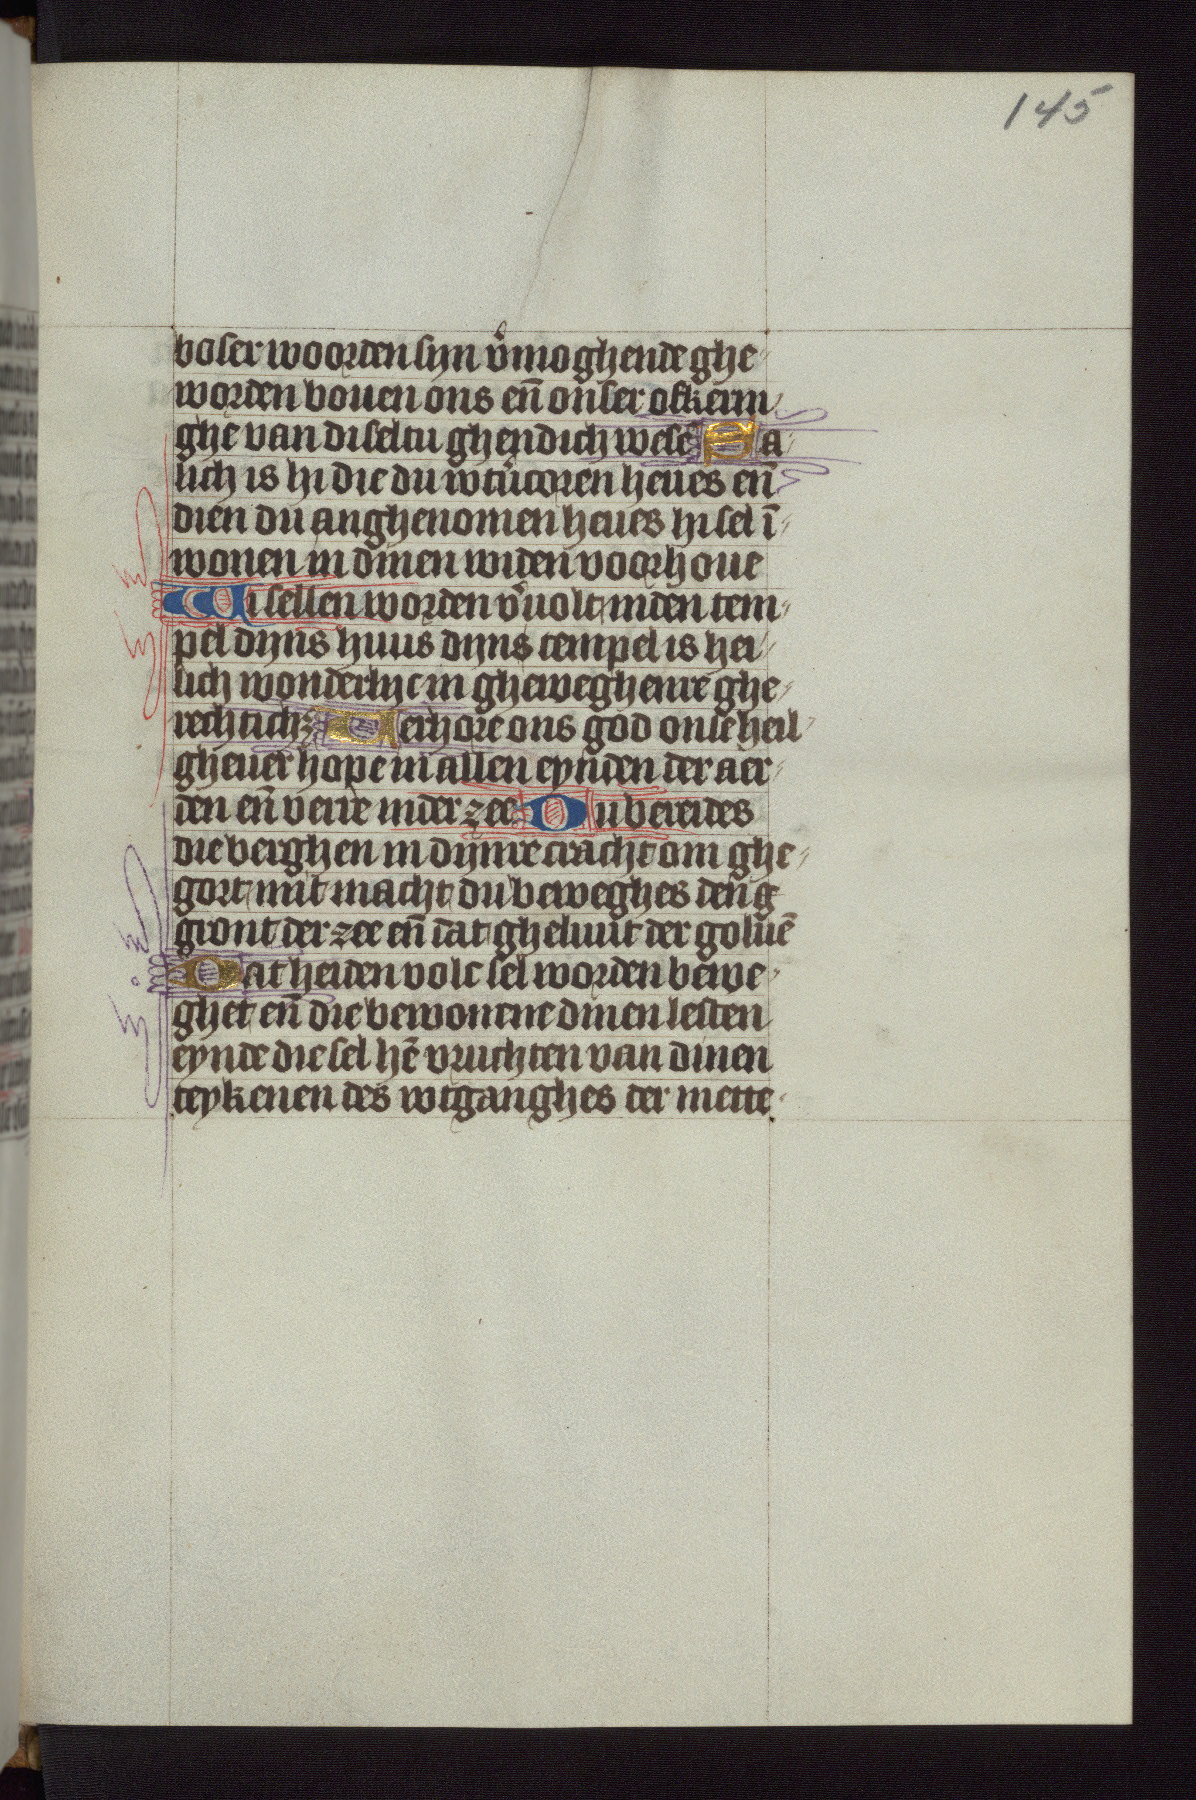 145
boser woorden sijn v̾moghende ghe
worden bouen ons en̄ onser ofkerin
ghe van di seltu ghendich wesē Sa
lich is hi die du wtu̾coren heues en̄
dien du anghenomen heues hi sel ī
wonen in dinen widen voorhoue
Wi sellen worden v̾uolt in den tem
pel dijns huus dijns tempel is hei
lich wonderlijc in gheweghenre ghe
rechtich; Verhore ons god onse heil
gheuer hope in allen eynden der aer
den en̄ verre in der zee Du bereides
die berghen in dijnre cracht om ghe
gort mit macht du beweghes den g
gront der zee en̄ dat gheluut der goluē
Dat heiden volc sel worden bewe
ghet en̄ die bewonene dinen lesten
eynde die sel hē vruchten van dinen
teykenen des wtganghes der mette